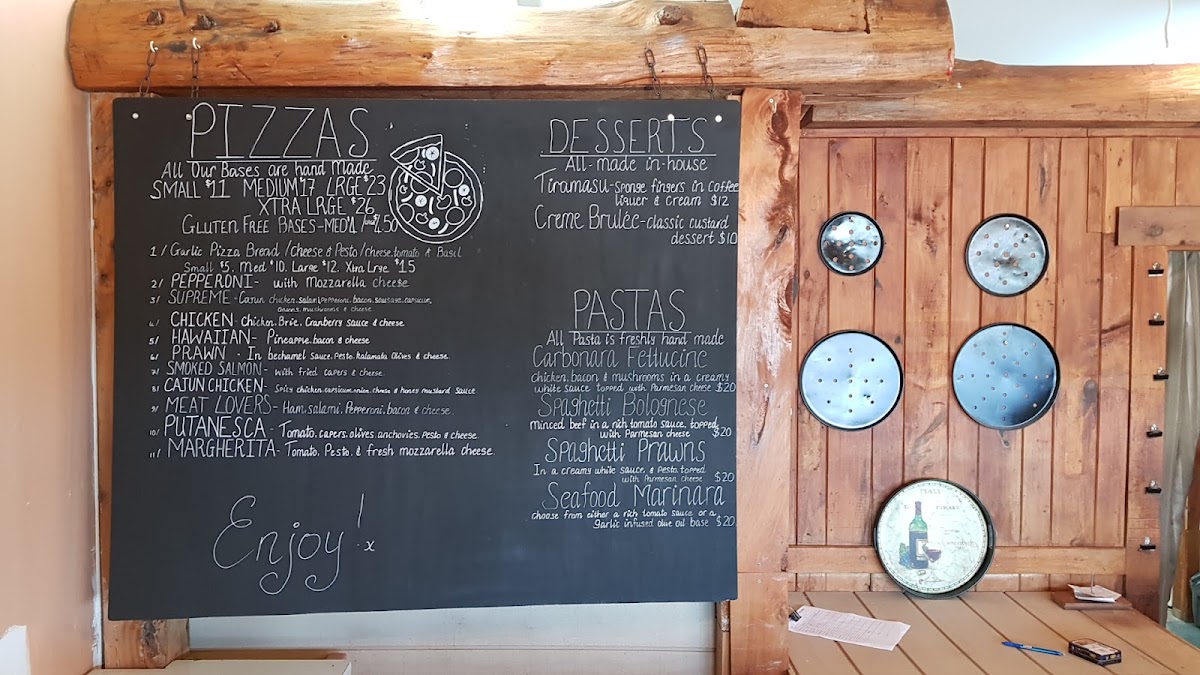 PIZZAS
All Our Bases are hand Made
SMALL $11 MEDIUM $17 LRGE $23
XTRA LRGE $26
GLUTEN FREE BASES-MED $4 / $4.50
1/ Garlic Pizza Bread /cheese & Pesto /cheese, tomato & Basil
Small $5. Med $10. Large $12. Xtra Lrge $15
2/ PEPPERONI- with Mozzarella cheese
3/ SUPREME-Cajun chicken.salami.Pepperoni.bacon.sausage.capsicum,
onions.mushrooms & cheese
4/ CHICKEN- chicken.Brie. Cranberry sauce & cheese
5/ HAWAIIAN- Pineapple.bacon & cheese
6/ PRAWN - In bechamel sauce.Pesto.kalamata Olives & cheese.
7/ SMOKED SALMON- with fried capers & cheese
8/ CAJUN CHICKEN- Spicy chicken.capsicum.onion.cheese & honey mustard sauce
9/ MEAT LOVERS- Ham.salami.Pepperoni.bacon & cheese.
10/ PUTANESCA- Tomato.capers.olives.anchovies.Pesto & cheese.
11/ MARGHERITA- Tomato. Pesto. & fresh mozzarella cheese.
Enjoy! x
DESSERTS
All-made in-house
Tiramasu-sponge fingers in coffee
liquer & cream $12
Creme Brulée-classic custard
dessert $10
PASTAS
All Pasta is freshly hand made
Carbonara Fettucine
chicken.bacon & mushrooms in a creamy
white sauce topped with parmesan cheese $20
Spaghetti Bolognese
minced beef in a rich tomato sauce. topped
with Parmesan cheese $20
Spaghetti Prawns
In a creamy white sauce. & Pesto.topped
with Parmesan cheese $20
Seafood Marinara
choose from either a rich tomato sauce or a
garlic infused olive oil base $20